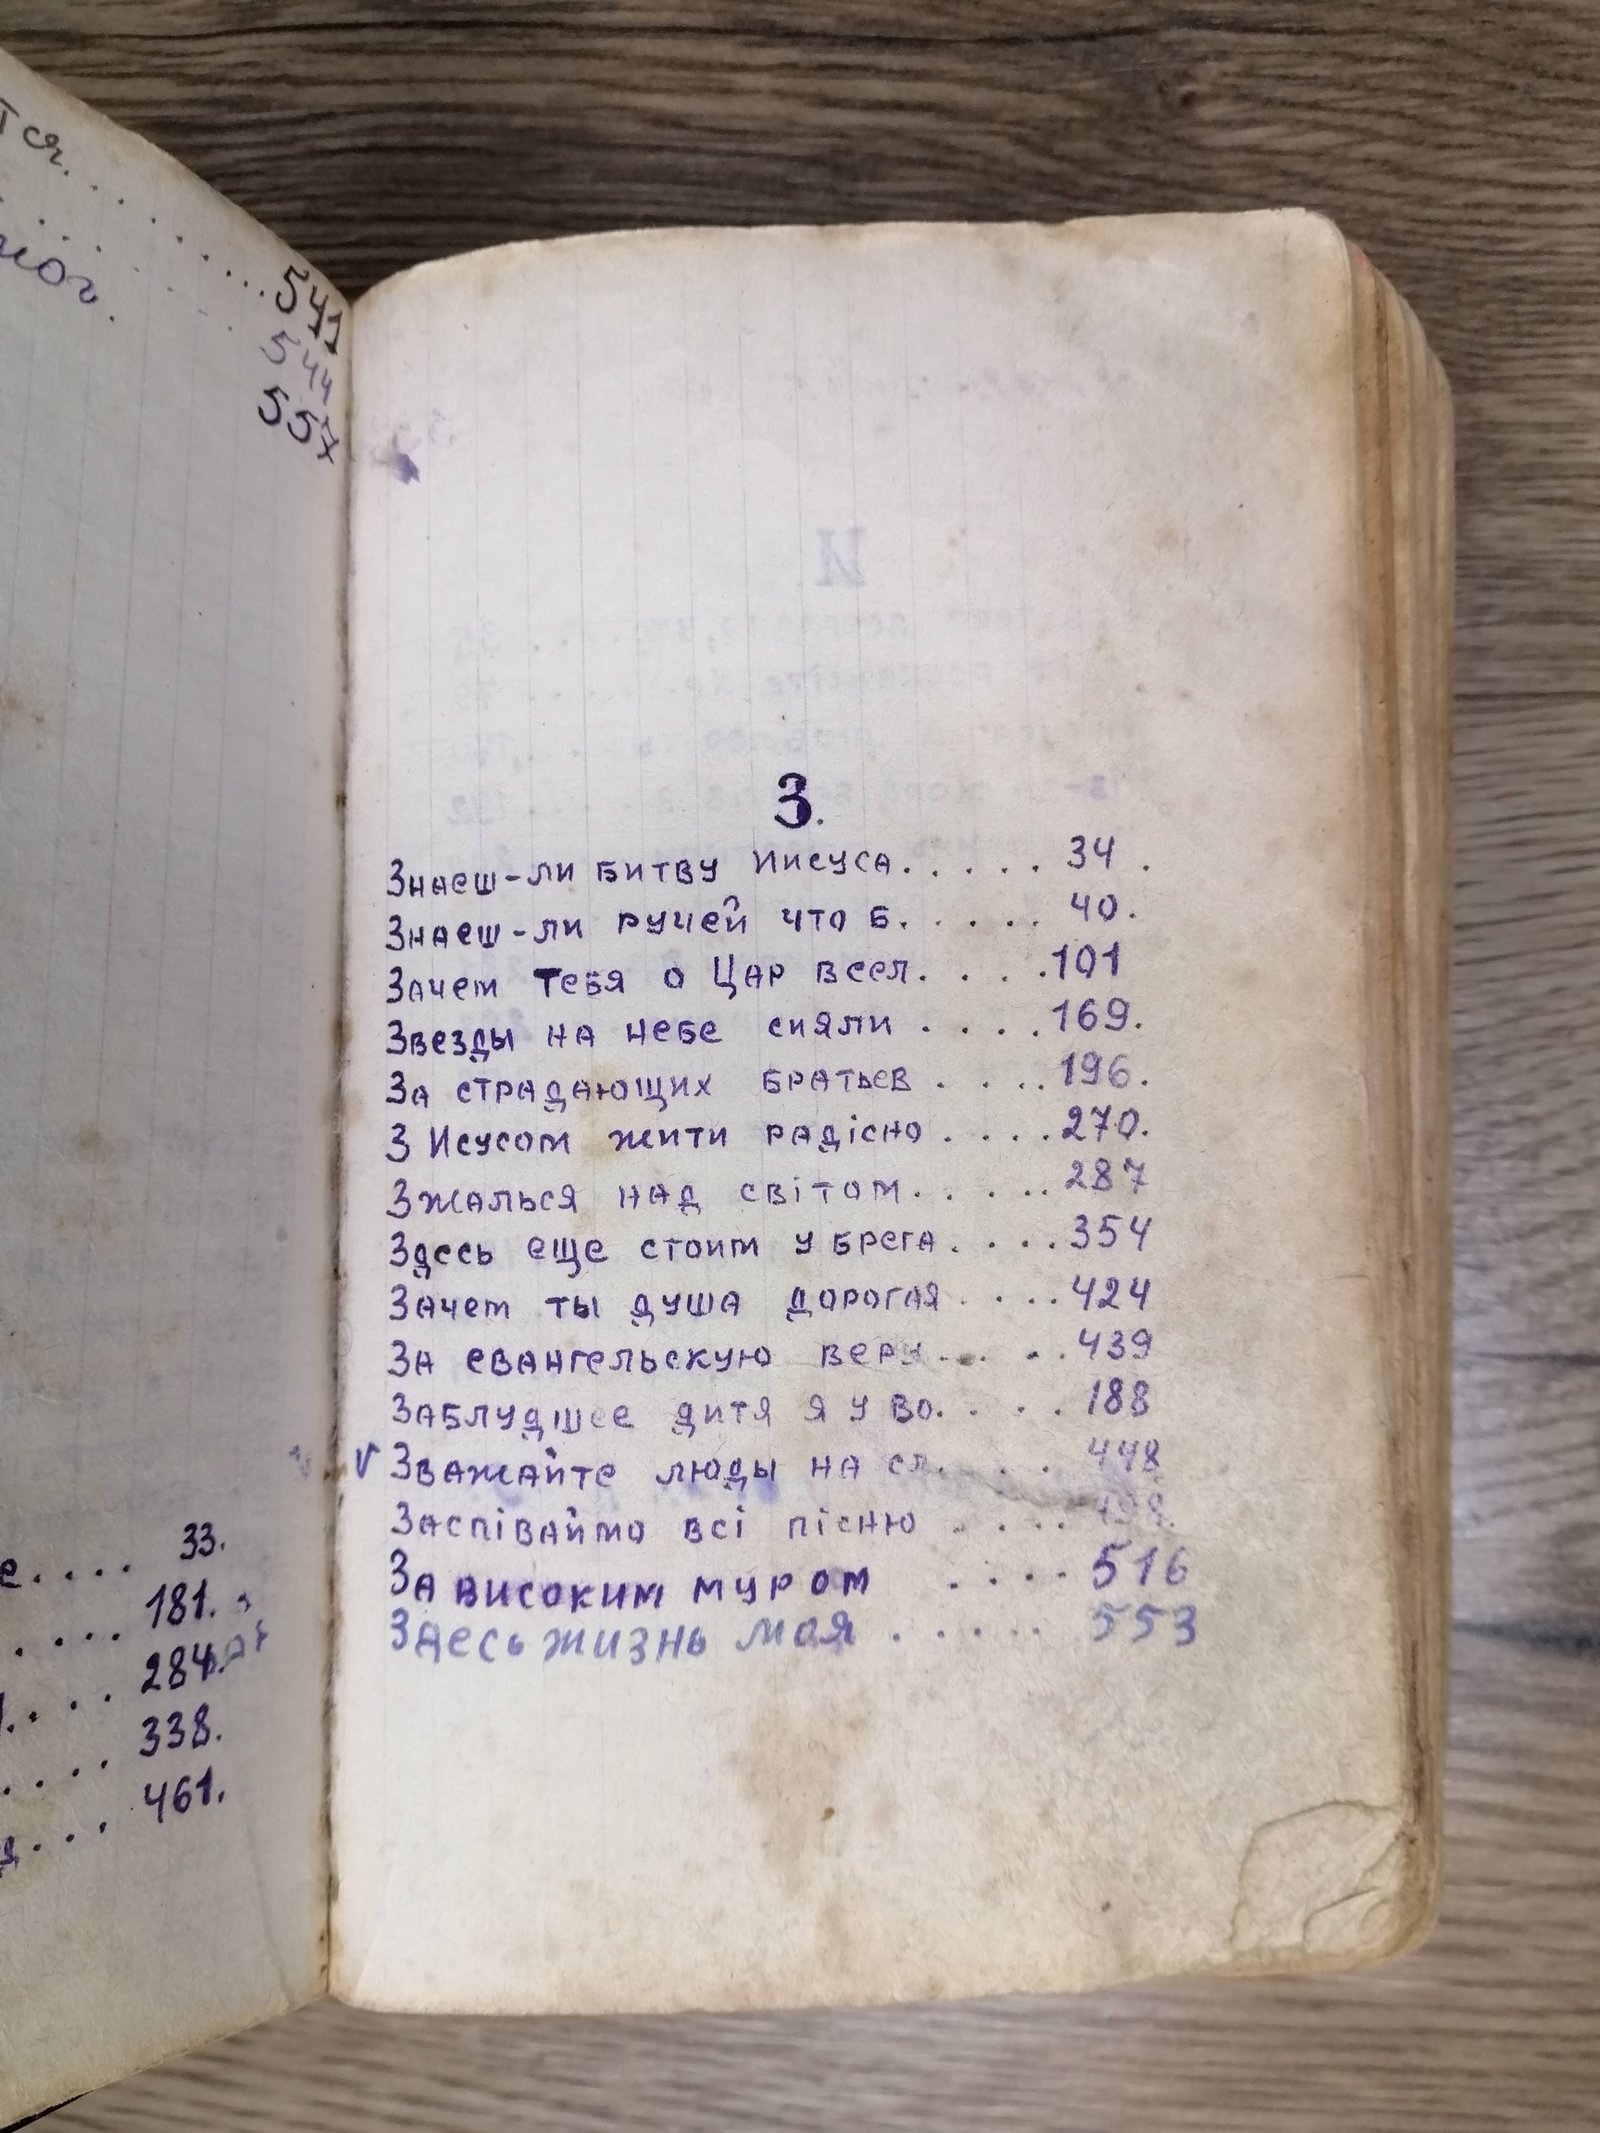 тся.......... 541
544
мог.
557
е.... 33.
.... 181.
.... 284.
.... 338.
д... 461.
З.
Знаеш-ли битву Иисуса..... 34.
Знаеш-ли ручей что б..... 40.
Зачем тебя о Цар всел.... 101
Звезды на небе сияли .... 169.
За страдающих братьев .... 196.
З Исусом жити радісно .... 270.
Зжалься над світом..... 287
Здесь еще стоит у брега.... 354
Зачем ты душа дорогая .... 424
За евангельскую веру.... 439
Заблудшее дитя я у во.... 188
V Зважайте люды на сл.... 448
Заспіваймо всі пісню .... 498.
За високим муром .... 516
Здесь жизнь моя ..... 553